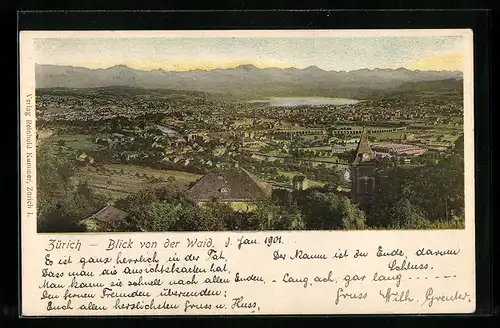 Verlag Reinhold Kümmer, Zürich I.
Zürich - Blick von der Waid. 9. Jan. 1901.
Es ist ganz herrlich in der Tat,
Dass man die Ansichtskarten hat,
Man kann sie schnell nach allen Enden,
Den fernen Freunden übersenden;
Euch allen herzlichsten Gruss u. Kuss,
Der Raum ist zu Ende, darum
Schluss.
- Lang, ach, gar lang - - - - - -
Gruss Wilh. Greuter